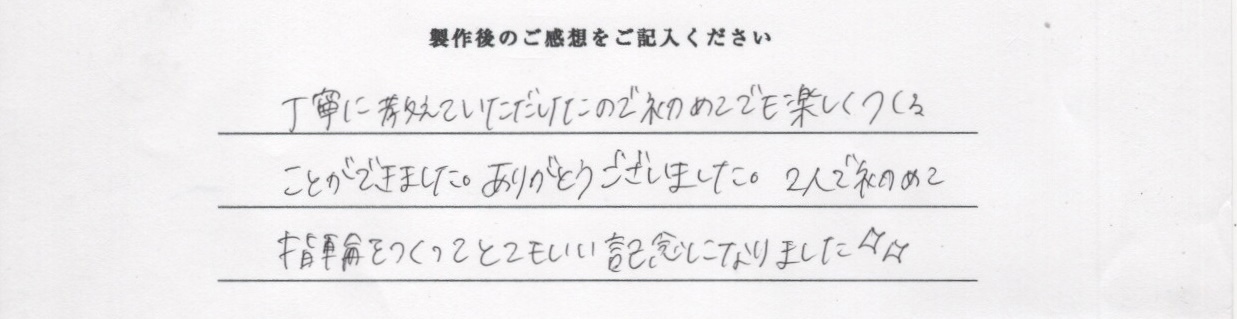 製作後のご感想をご記入ください
丁寧に教えていただけたので初めてでも楽しくつくる
ことができました。ありがとうございました。2人で初めて
指輪をつくってとてもいい記念になりました☆☆